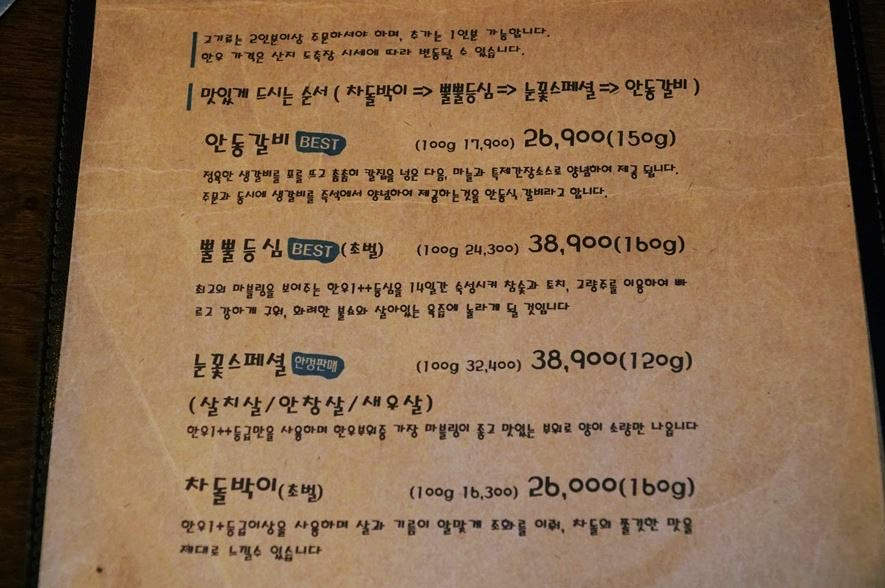 고기류는 2인분이상 주문하셔야 하며, 추가는 1인분 가능합니다.
한우 가격은 산지 도축장 시세에 따라 변동될 수 있습니다.
맛있게 드시는 순서 ( 차돌박이 => 뿔뿔등심 => 눈꽃스페셜 => 안동갈비 )
안동갈비 BEST (100g 17,900) 26,900(150g)
정육한 생갈비를 포를 뜨고 촘촘히 칼집을 넣은 다음, 마늘과 특제간장소스로 양념하여 제공 됩니다.
주문과 동시에 생갈비를 즉석에서 양념하여 제공하는것을 안동식 갈비라고 합니다.
뿔뿔등심 BEST (초벌) (100g 24,300) 38,900(160g)
최고의 마블링을 보여주는 한우1++등심을 14일간 숙성시켜 참숯과 토치, 고량주를 이용하여 빠
르고 강하게 구워, 화려한 불쇼와 살아있는 육즙에 놀라게 될 것입니다
눈꽃스페셜 한정판매 (100g 32,400) 38,900(120g)
(살치살/안창살/새우살)
한우1++등급만을 사용하며 한우부위중 가장 마블링이 좋고 맛있는 부위로 양이 소량만 나옵니다
차돌박이(초벌) (100g 16,300) 26,000(160g)
한우1+등급이상을 사용하며 살과 기름이 알맞게 조화를 이뤄, 차돌의 쫄깃한 맛을
제대로 느낄수 있습니다